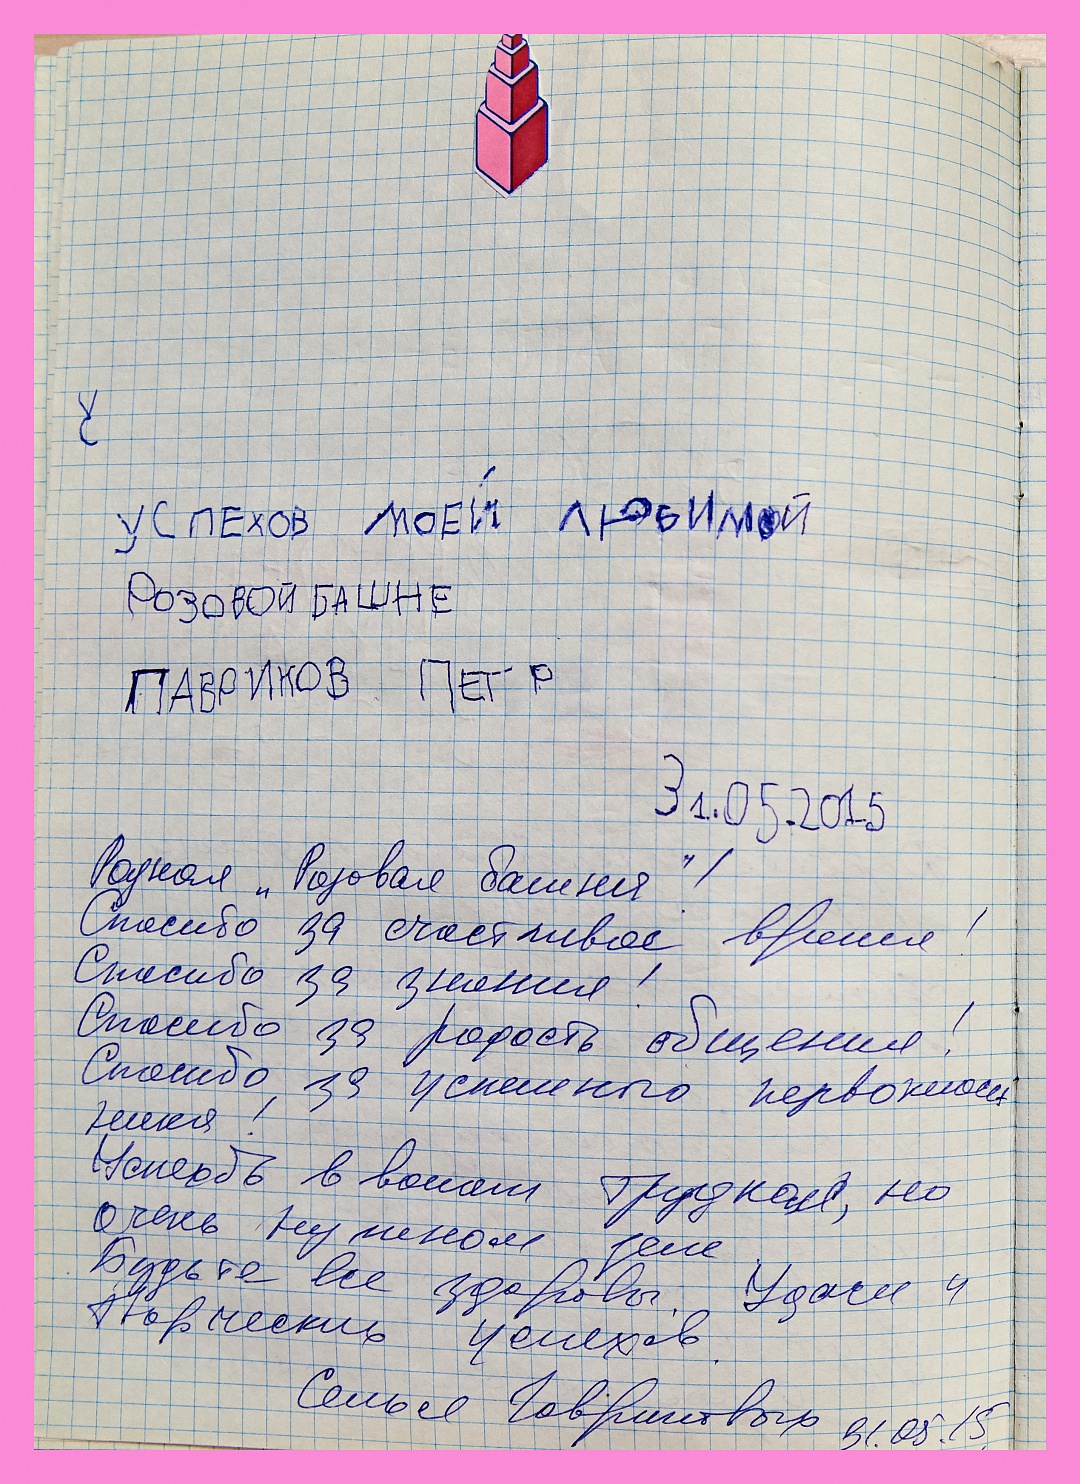 У
С
УСПЕХОВ МОЕЙ ЛЮБИМОЙ
РОЗОВОЙ БАШНЕ
ПАВРИКОВ ПЕТР
31.05.2015
Родная „Розовая башня"!
Спасибо за счастливое время!
Спасибо за знания!
Спасибо за радость общения!
Спасибо за успешного первоклаш
ника!
Успехов в вашем трудном, но
очень нужном деле.
Будьте все здоровы. Удачи и
творческих успехов.
Семья 31.05.15